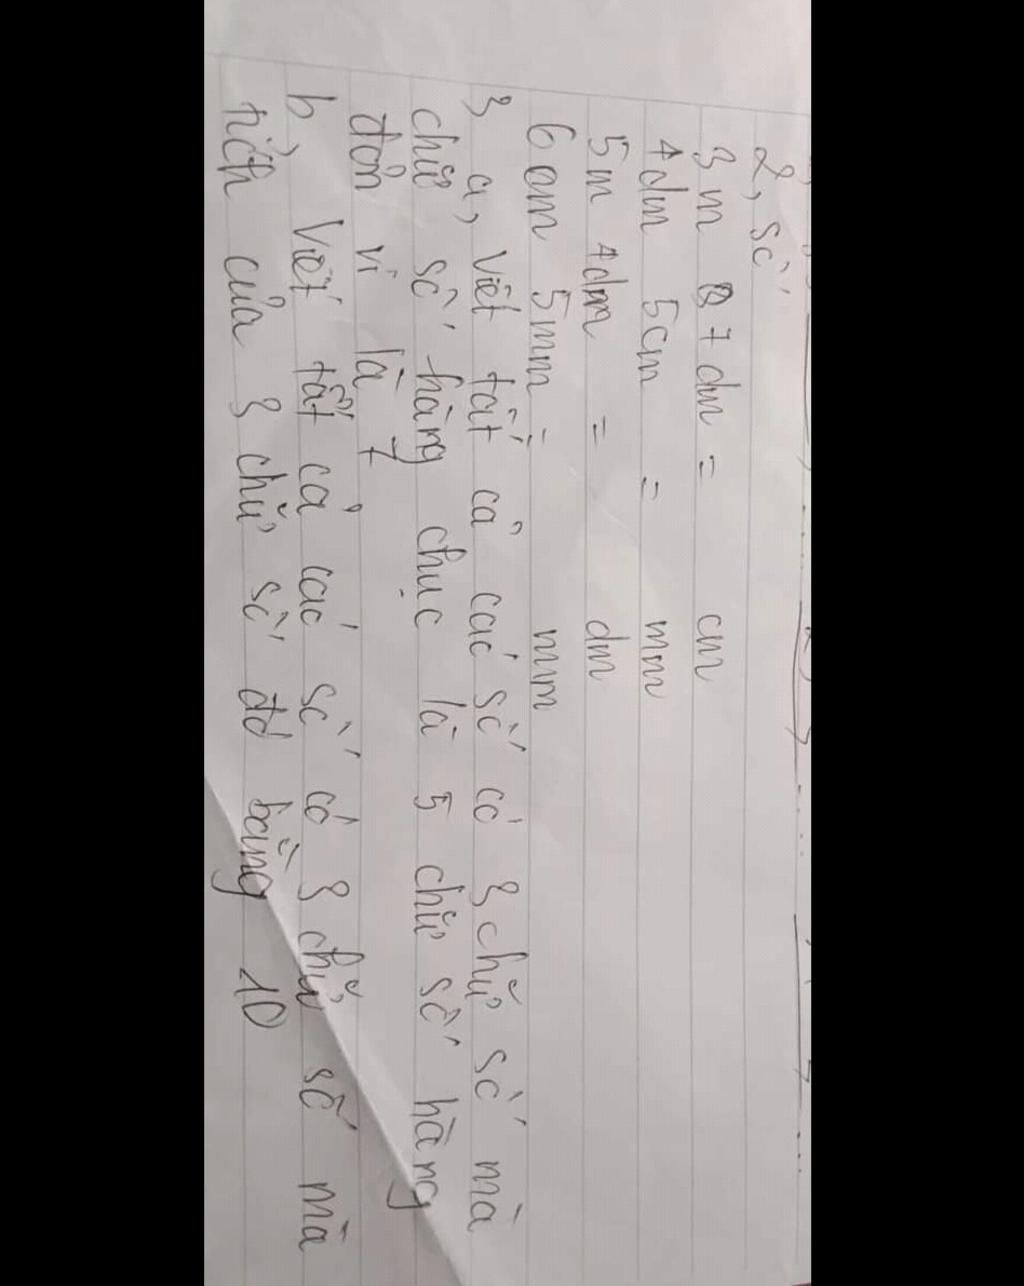 2, số
3 m 7 dm = cm
4dm 5cm = mm
5m 4dm = dm
6 cm 5mm = mm
3 a, Viết tất cả các số có 3 chữ số mà
chữ số hàng chục là 5 chữ số hàng
đơn vị là 7
b, Viết tất cả các số có 3 chữ số mà
tích của 3 chữ số đó bằng 10